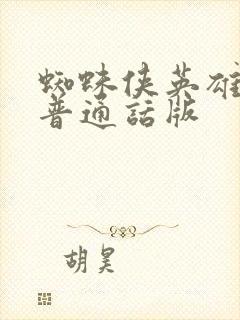 蜘蛛侠英雄
普通話版
胡昊